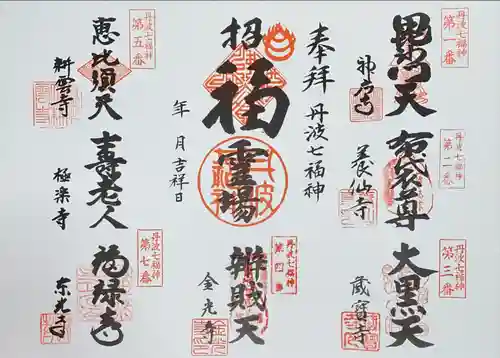 丹波七福神
第一番
毘沙門天
神応寺
丹波七福神
第二番
布袋尊
養仙寺
丹波七福神
第三番
大黒天
蔵宝寺
奉拝 丹波七福神
招福霊場
年 月吉祥日
丹波七福神
第四番
辨財天
金光寺
丹波七福神
第五番
恵比須天
耕雲寺
寿老人
極楽寺
丹波七福神
第七番
福禄寿
東光寺